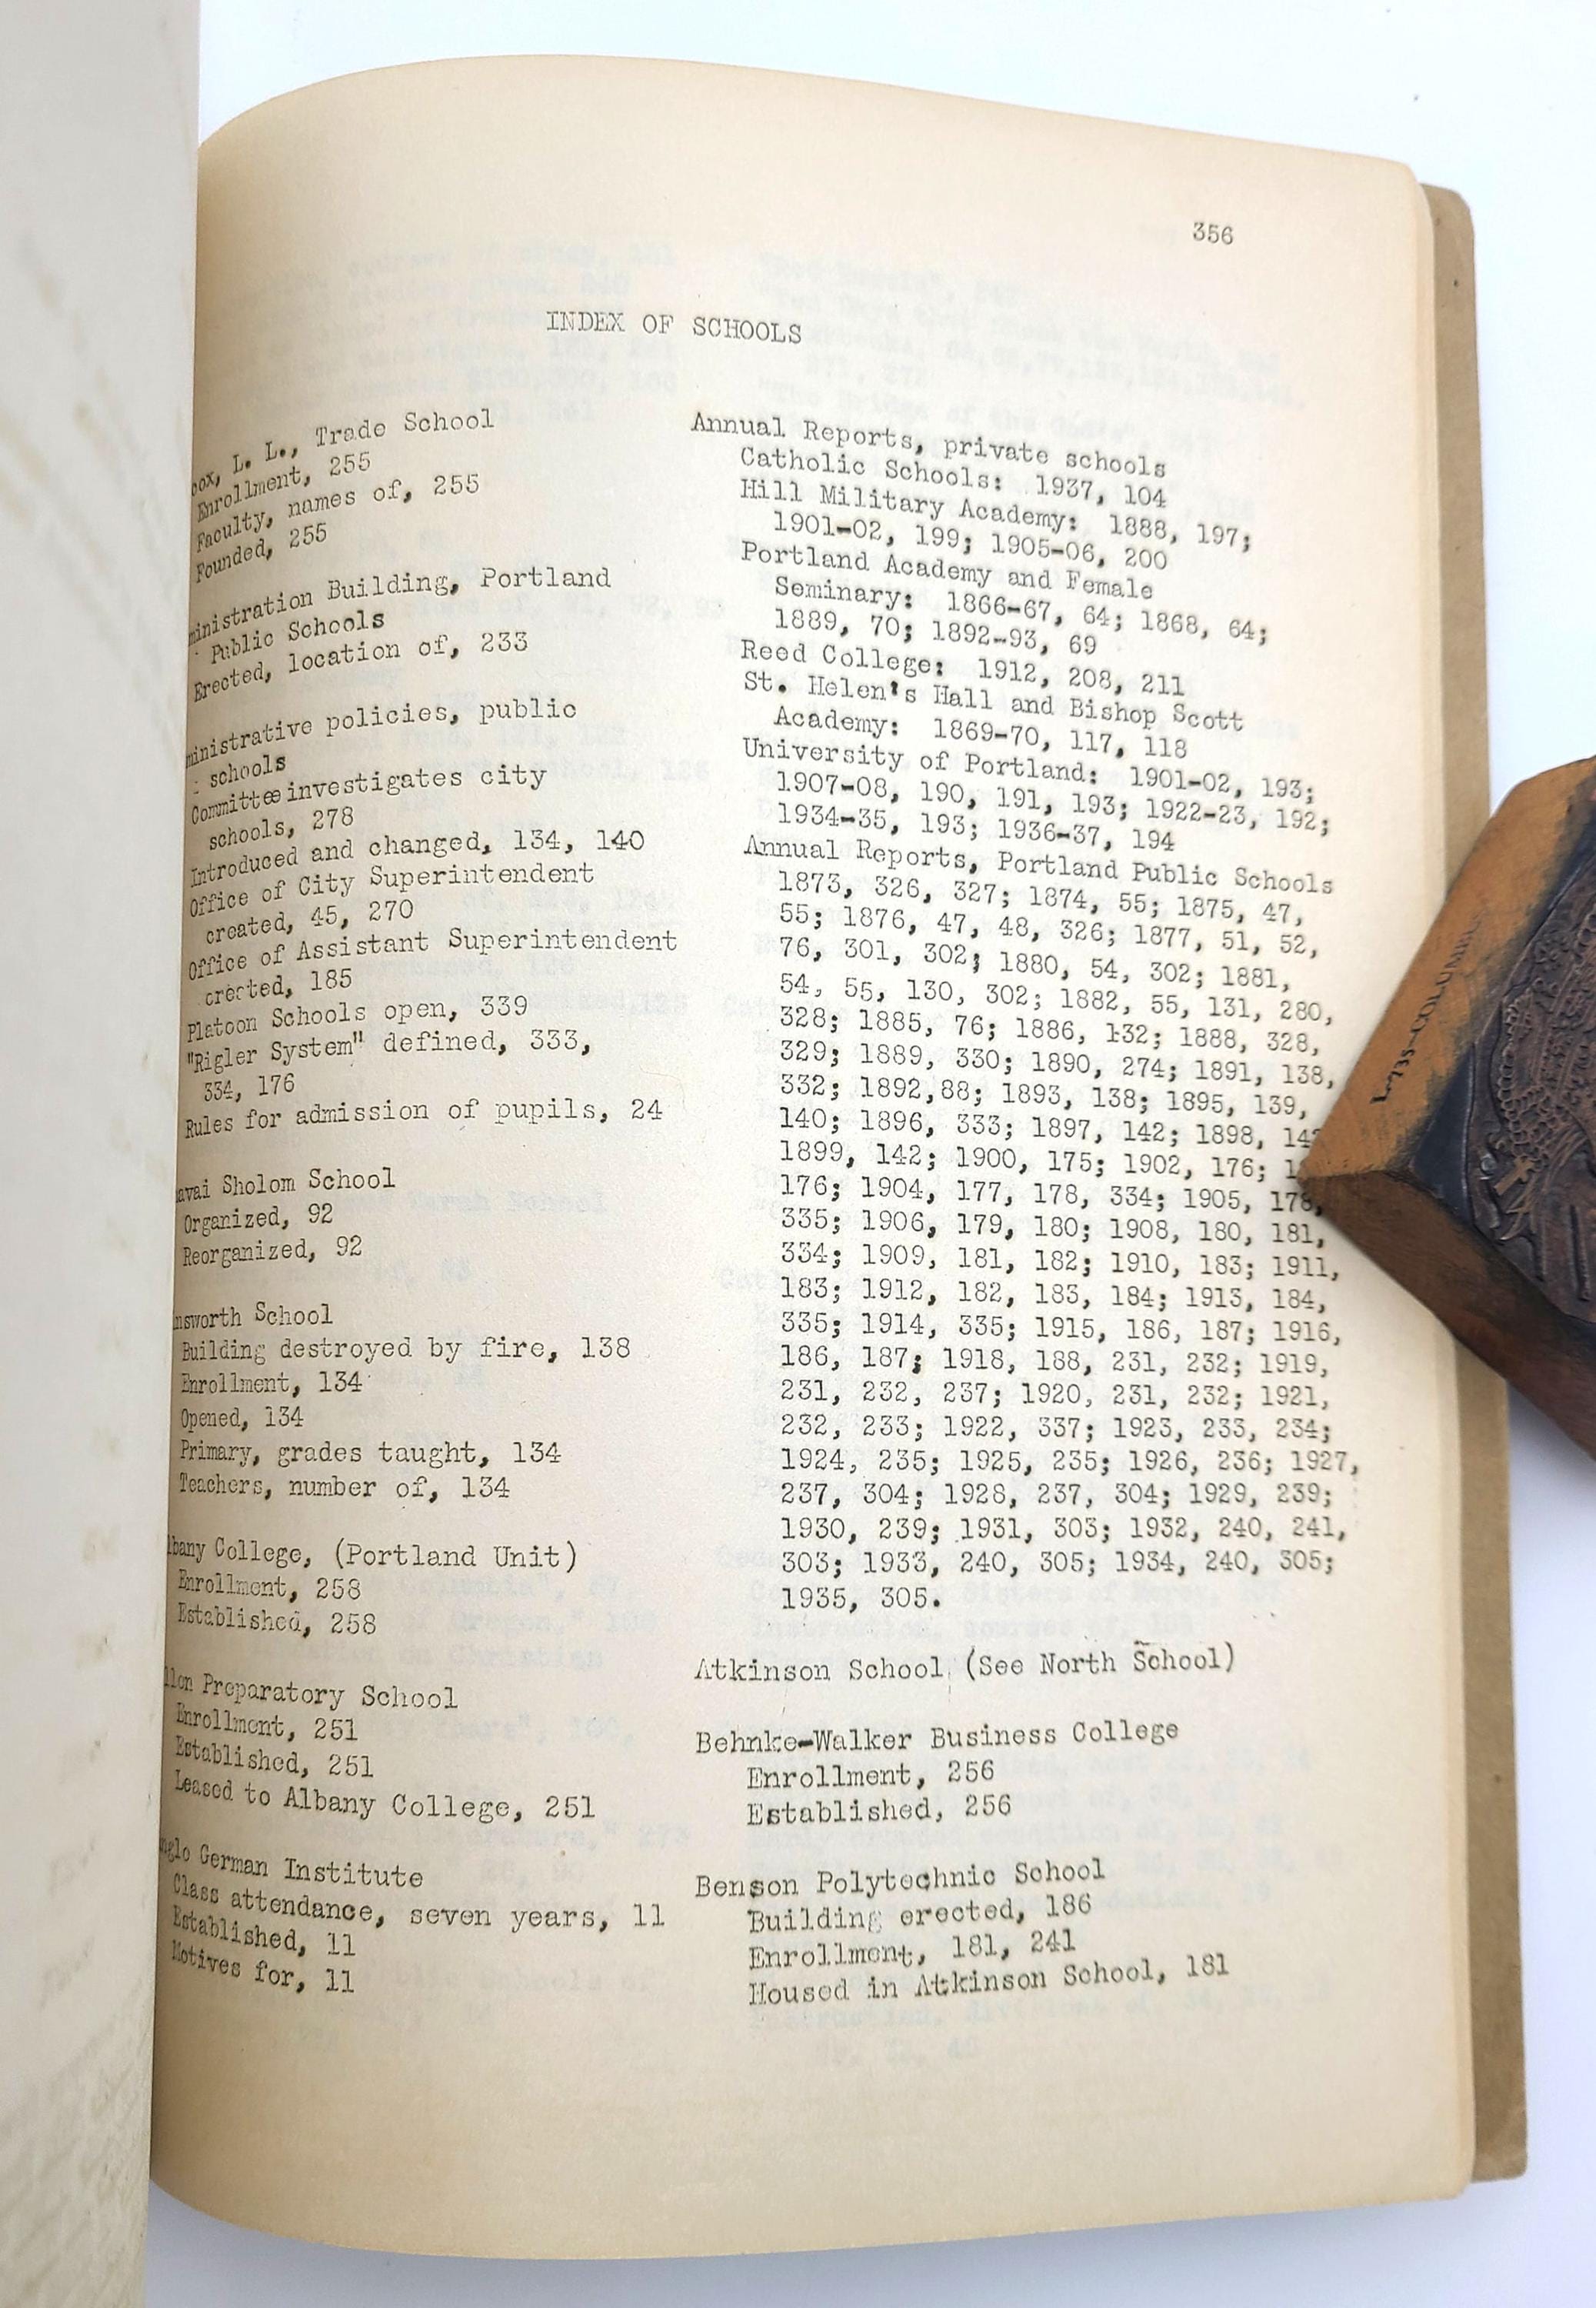 356
INDEX OF SCHOOLS
L. L., Trade School
Enrollment, 255
Faculty, names of, 255
Founded, 255
Building, Portland
Public Schools
Erected, location of, 233
policies, public
schools
Committee investigates city
schools, 278
Introduced and changed, 134, 140
Office of City Superintendent
created, 45, 270
Office of Assistant Superintendent
created, 185
Platoon Schools open, 339
"Rigler System" defined, 333,
334, 176
Rules for admission of pupils, 24
Sholom School
Organized, 92
Reorganized, 92
School
Building destroyed by fire, 138
Enrollment, 134
Opened, 134
Primary, grades taught, 134
Teachers, number of, 134
College, (Portland Unit)
Enrollment, 258
Established, 258
Preparatory School
Enrollment, 251
Established, 251
Leased to Albany College, 251
German Institute
Class attendance, seven years, 11
Established, 11
Motives for, 11
Annual Reports, private schools
Catholic Schools: 1937, 104
Hill Military Academy: 1888, 197;
1901-02, 199; 1905-06, 200
Portland Academy and Female
Seminary: 1866-67, 64; 1868, 64;
1889, 70; 1892-93, 69
Reed College: 1912, 208, 211
St. Helen's Hall and Bishop Scott
Academy: 1869-70, 117, 118
University of Portland: 1901-02, 193;
1907-08, 190, 191, 193; 1922-23, 192;
1934-35, 193; 1936-37, 194
Annual Reports, Portland Public Schools
1873, 326, 327; 1874, 55; 1875, 47,
55; 1876, 47, 48, 326; 1877, 51, 52,
76, 301, 302; 1880, 54, 302; 1881,
54, 55, 130, 302; 1882, 55, 131, 280,
328; 1885, 76; 1886, 132; 1888, 328,
329; 1889, 330; 1890, 274; 1891, 138,
332; 1892,88; 1893, 138; 1895, 139,
140; 1896, 333; 1897, 142; 1898,
1899, 142; 1900, 175; 1902, 176;
176; 1904, 177, 178, 334; 1905, 178,
335; 1906, 179, 180; 1908, 180, 181,
334; 1909, 181, 182; 1910, 183; 1911,
183; 1912, 182, 183, 184; 1913, 184,
335; 1914, 335; 1915, 186, 187; 1916,
186, 187; 1918, 188, 231, 232; 1919,
231, 232, 237; 1920, 231, 232; 1921,
232, 233; 1922, 337; 1923, 233, 234;
1924, 235; 1925, 235; 1926, 236; 1927,
237, 304; 1928, 237, 304; 1929, 239;
1930, 239; 1931, 303; 1932, 240, 241,
303; 1933, 240, 305; 1934, 240, 305;
1935, 305.
Atkinson School (See North School)
Behnke-Walker Business College
Enrollment, 256
Established, 256
Benson Polytechnic School
Building erected, 186
Enrollment, 181, 241
Housed in Atkinson School, 181